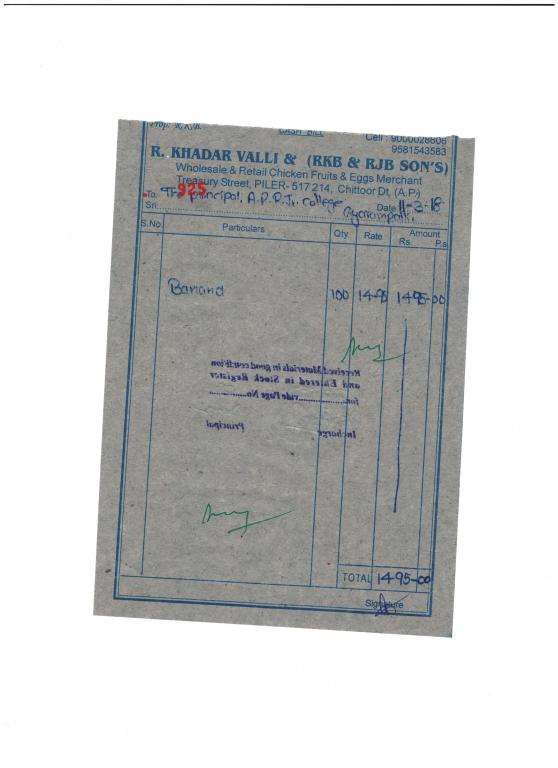 Prop. R.K.B.
CASH BILL
Cell : 9000028806
9581543583
R. KHADAR VALLI & (RKB & RJB SON'S)
Wholesale & Retail Chicken Fruits & Eggs Merchant
Treasury Street, PILER- 517 214, Chittoor Dt. (A.P.)
925
To. The principal, A.P.R.J. college
Sri Gyarampalli.
Date 11-3-18
S.No. Particulars Qty Rate Amount
Rs. P.s
Banana 100 14-95 1495-00
Received Materials in good condition
and Entered in Stock Register
for..............vide Page No..............
Incharge Principal
TOTAL 1495-00
Signature